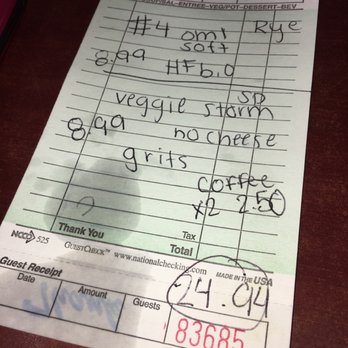 SOUP/SAL-ENTREE-VEG/POT-DESSERT-BEV
#4 oml Rye
soft
8.99 HFb.O
veggie storm SD
8.99 no cheese
grits
coffee
x2 2.50
Thank You Tax
Total
NCCO 525 GUESTCHECK™ www.nationalchecking.com MADE IN THE USA
Guest Receipt
Date Amount Guests
24.94
83685